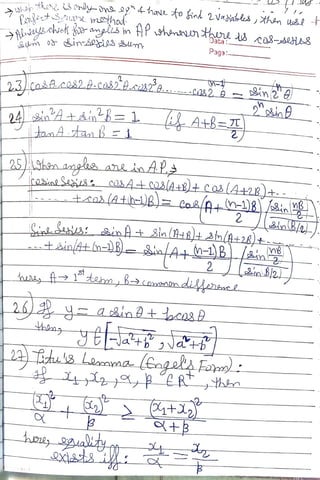 → when there is only one eqn & have to find 2 variables, then use
Perfect square method
→ Always check for angles in AP whenever there is cos-series
sum or sin-series sum
Date:
Page:
23) cosA.cos2A.cos2²A.cos2³A.........cos2^(n-1)θ = sin2ⁿθ / 2ⁿsinθ
24) sin²A + sin²B = 1 (if A+B = π/2)
tanA.tanB = 1
25) When angles are in AP,→
Cosine Series: cosA + cos(A+B) + cos(A+2B) +..
... + cos(A+(n-1)B) = cos(A + (n-1)B/2) (sin(nB/2) / sin(B/2))
Sine Series: sinA + sin(A+B) + sin(A+2B) + ...
... + sin(A+(n-1)B) = sin(A + (n-1)B/2) . (sin(nB/2) / sin(B/2))
here, A → 1st term, B → common difference
26) If y = a sinθ + b cosθ
then, y ∈ [-√a²+b², √a²+b²]
27) Titu's Lemma (Engel's Form):
If x₁, x₂, α, β ∈ R⁺, then
(x₁)²/α + (x₂)²/β ≥ (x₁+x₂)²/α+β
here, equality
exists iff: x₁/α = x₂/β